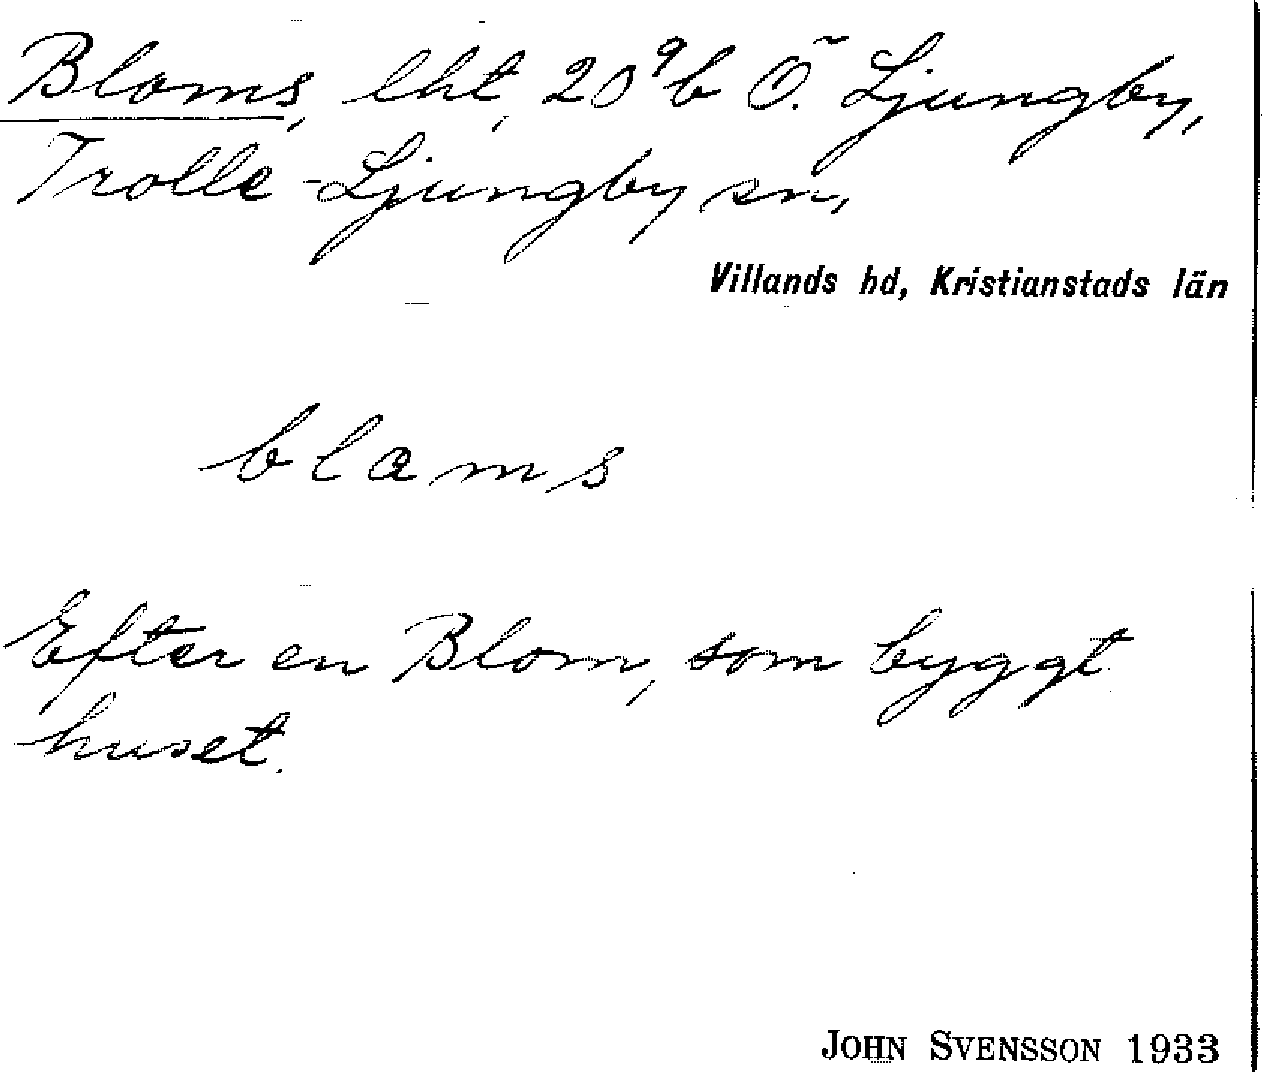 Bloms, lht, 20⁹b Ö. Ljungby,
Trolle-Ljungby sn,
Villands hd, Kristianstads län
blams
Efter en Blom, som byggt
huset.
JOHN SVENSSON 1933